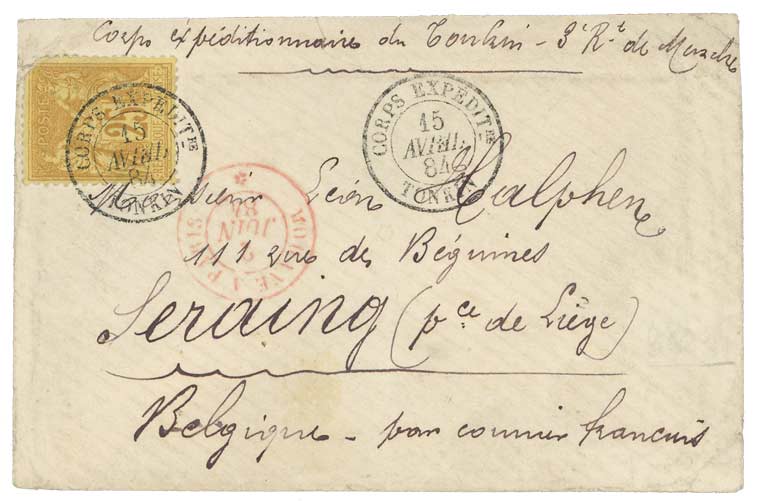 Corps expéditionnaire du Tonkin - 3e Rt de Marche
POSTES
25
CORPS EXPEDITRE
15
AVRIL
84
TONKIN
CORPS EXPEDITRE
15
AVRIL
84
TONKIN
MODANE A PARIS
2
JUIN
84
Monsieur Léon Halphen
111 rue des Béguines
Seraing (pce de Liège)
Belgique - par courrier français